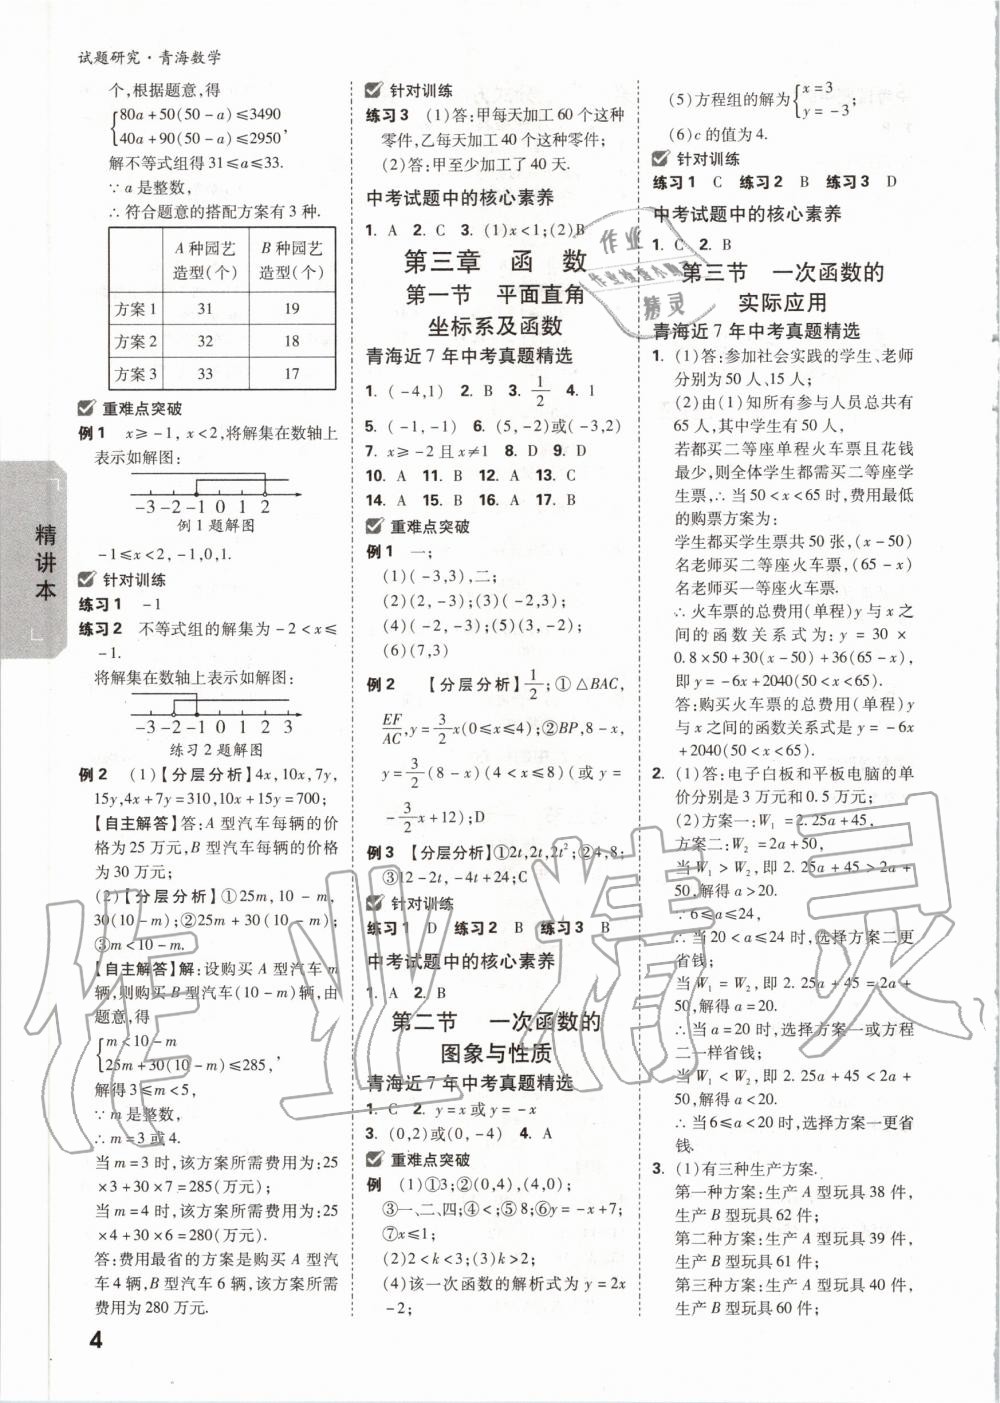 试题研究·青海数学
个,根据题意,得
{80a+50(50-a)≤3490
40a+90(50-a)≤2950,
解不等式组得31≤a≤33.
∵a是整数,
∴符合题意的搭配方案有3种.
A种园艺造型(个) B种园艺造型(个)
方案1 31 19
方案2 32 18
方案3 33 17
重难点突破
例1 x≥-1,x<2,将解集在数轴上
表示如解图:
-3 -2 -1 0 1 2
例1题解图
-1≤x<2,-1,0,1.
针对训练
练习1 -1
练习2 不等式组的解集为-2<x≤
-1.
将解集在数轴上表示如解图:
-3 -2 -1 0 1 2 3
练习2题解图
例2 (1)【分层分析】4x,10x,7y,
15y,4x+7y=310,10x+15y=700;
【自主解答】答:A型汽车每辆的价
格为25万元,B型汽车每辆的价格
为30万元;
(2)【分层分析】①25m,10-m,
30(10-m);②25m+30(10-m);
③m<10-m.
【自主解答】解:设购买A型汽车m
辆,则购买B型汽车(10-m)辆,由
题意,得
{m<10-m
25m+30(10-m)≤285,
解得3≤m<5,
∵m是整数,
∴m=3或4.
当m=3时,该方案所需费用为:25
×3+30×7=285(万元);
当m=4时,该方案所需费用为:25
×4+30×6=280(万元).
答:费用最省的方案是购买A型汽
车4辆,B型汽车6辆,该方案所需
费用为280万元.
针对训练
练习3 (1)答:甲每天加工60个这种
零件,乙每天加工40个这种零件;
(2)答:甲至少加工了40天.
中考试题中的核心素养
1. A 2. C 3. (1)x<1;(2)B
第三章 函 数
第一节 平面直角
坐标系及函数
青海近7年中考真题精选
1. (-4,1) 2. B 3. 1/2 4. 1
5. (-1,-1) 6. (5,-2)或(-3,2)
7. x≥-2且x≠1 8. D 9. D
10. A 11. B 12. A 13. C
14. A 15. B 16. A 17. B
重难点突破
例1 一;
(1)(-3,3),二;
(2)(2,-3);(3)(-2,3);
(4)(-2,-3);(5)(3,-2);
(6)(7,3)
例2 【分层分析】1/2;①△BAC,
EF/AC,y=3/2x(0≤x≤4);②BP,8-x,
y=3/2(8-x)(4<x≤8)(或y=
-3/2x+12);D
例3 【分层分析】①2t,2t,2t²;②4,8;
③12-2t,-4t+24;C
针对训练
练习1 D 练习2 B 练习3 B
中考试题中的核心素养
1. A 2. B
第二节 一次函数的
图象与性质
青海近7年中考真题精选
1. C 2. y=x或y=-x
3. (0,2)或(0,-4) 4. A
重难点突破
例 (1)①3;②(0,4),(4,0);
③一、二、四;④<;⑤8;⑥y=-x+7;
⑦x≤1;
(2)2<k<3;(3)k>2;
(4)该一次函数的解析式为y=2x
-2;
(5)方程组的解为{x=3
y=-3;
(6)c的值为4.
针对训练
练习1 C 练习2 B 练习3 D
中考试题中的核心素养
1. C 2. B
第三节 一次函数的
实际应用
青海近7年中考真题精选
1. (1)答:参加社会实践的学生、老师
分别为50人、15人;
(2)由(1)知所有参与人员总共有
65人,其中学生有50人,
若都买二等座单程火车票且花钱
最少,则全体学生都需买二等座学
生票,∴当50<x<65时,费用最低
的购票方案为:
学生都买学生票共50张,(x-50)
名老师买二等座火车票,(65-x)
名老师买一等座火车票.
∴火车票的总费用(单程)y与x之
间的函数关系式为:y=30×
0.8×50+30(x-50)+36(65-x),
即y=-6x+2040(50<x<65).
答:购买火车票的总费用(单程)y
与x之间的函数关系式是y=-6x
+2040(50<x<65).
2. (1)答:电子白板和平板电脑的单
价分别是3万元和0.5万元;
(2)方案一:W₁=2.25a+45,
方案二:W₂=2a+50,
当W₁>W₂时,即2.25a+45>2a+
50,解得a>20.
∵6≤a≤24,
∴当20<a≤24时,选择方案二更
省钱;
当W₁=W₂时,即2.25a+45=2a+
50,解得a=20.
∴当a=20时,选择方案一或方案
二一样省钱;
当W₁<W₂时,即2.25a+45<2a+
50,解得a<20.
∴当6≤a<20时,选择方案一更省
钱.
3. (1)有三种生产方案.
第一种方案:生产A型玩具38件,
生产B型玩具62件;
第二种方案:生产A型玩具39件,
生产B型玩具61件;
第三种方案:生产A型玩具40件,
生产B型玩具60件;
精讲本
4
作业
作业检查小助手
精灵
作业精灵